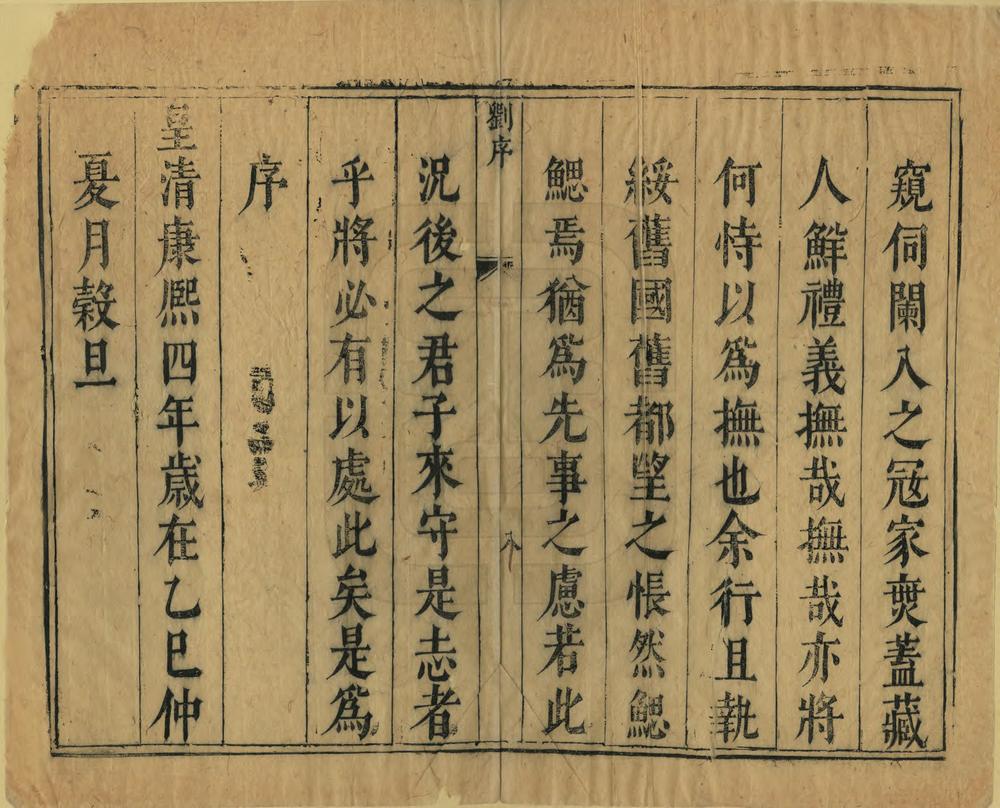 窺伺闌入之冦家𡙇蓋藏
人鮮禮義撫哉撫哉亦將
何恃以爲撫也余行且執
綏舊國舊都望之悵然鰓
鰓焉猶爲先事之慮若此
劉序
八
況後之君子來守是志者
乎將必有以處此矣是爲
序
皇清康熙四年歲在乙巳仲
夏月穀旦